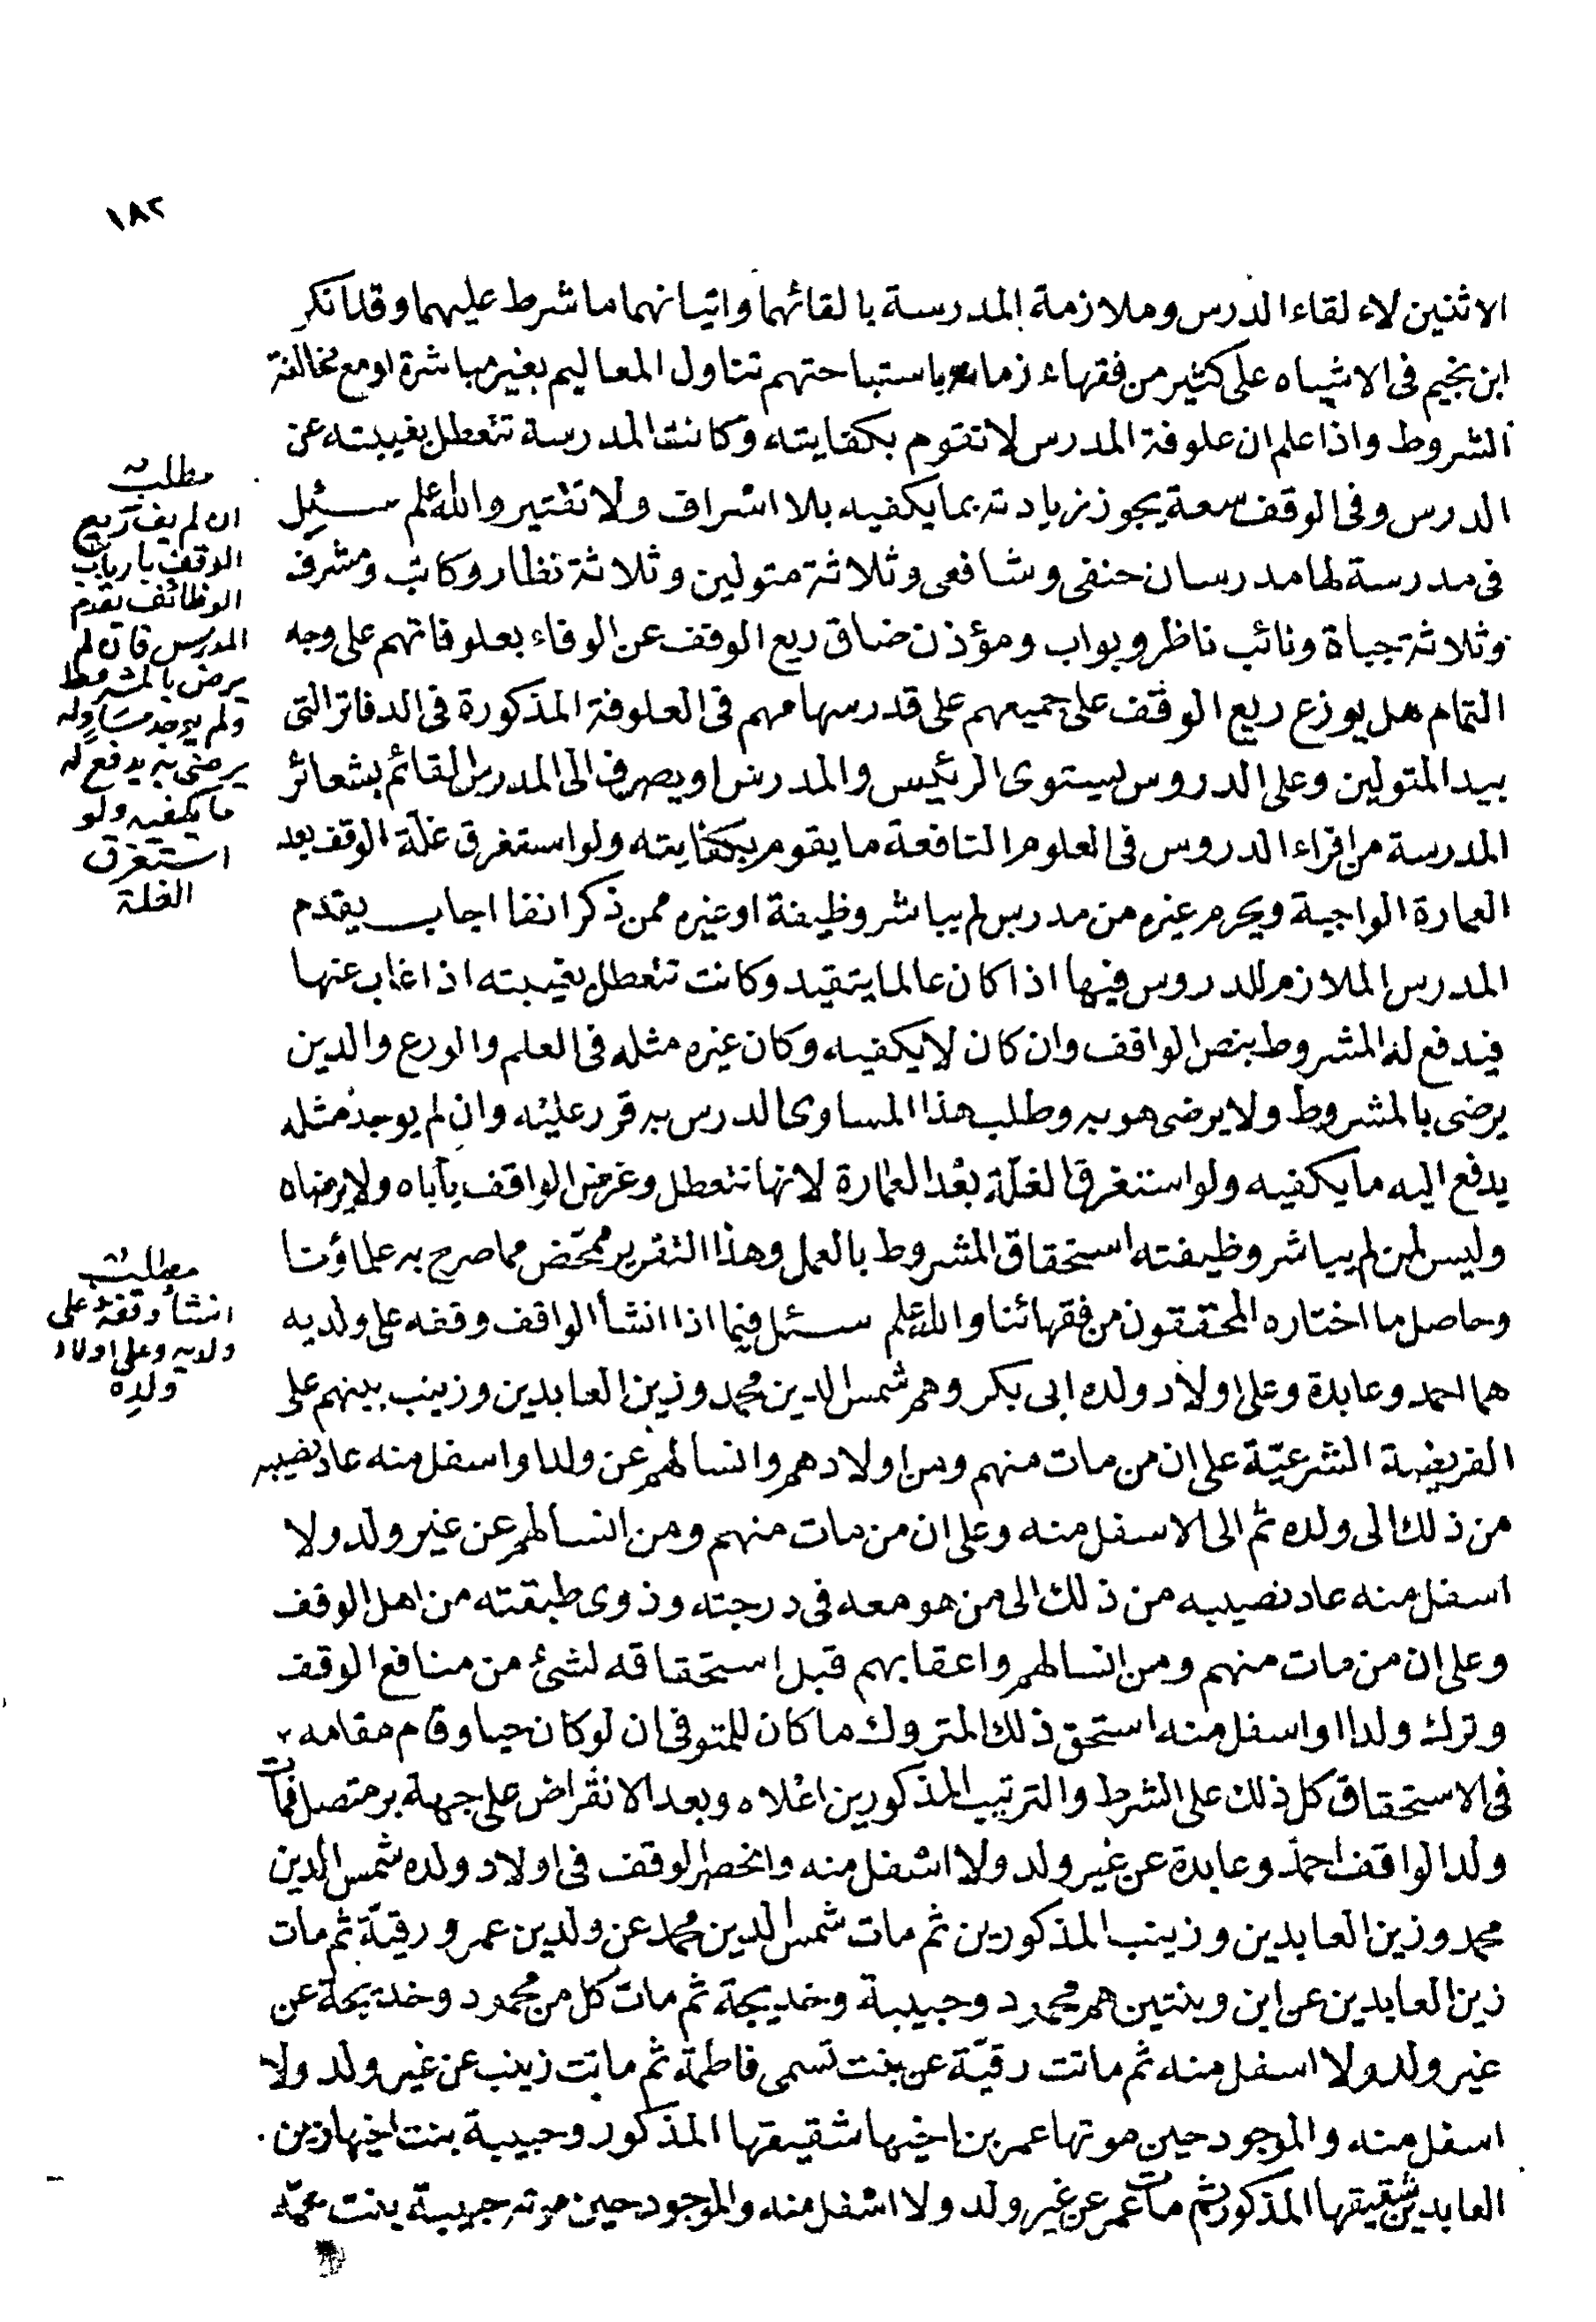 ١٨٢
الاثنين لاء لقاء الدرس وملازمة المدرسة بالقائهما واتيانهما ما شرط عليهما وقد انكر
ابن نجيم فى الاشباه على كثير من فقهاء زمانه باستباحتهم تناول المعاليم بغير مباشرة او مع مخالفة
الشروط واذا علم ان علوفة المدرس لا تقوم بكفايته وكانت المدرسة تتعطل بغيبته عن
الدرس وفى الوقف سعة يجوز زيادته بما يكفيه بلا اسراف ولا تقتير والله اعلم سئل
فى مدرسة لها مدرسان حنفى وشافعى وثلاثة متولين وثلاثة نظار وكاتب ومشرف
وثلاثة جباة ونائب ناظر وبواب ومؤذن ضاق ريع الوقف عن الوفاء بعلوفاتهم على وجه
التمام هل يوزع ريع الوقف على جميعهم على قدر سهامهم فى العلوفة المذكورة فى الدفاتر التى
بيد المتولين وعلى الدروس ليستوى الرئيس والمدرس او يصرف الى المدرس القائم بشعائر
المدرسة من اقراء الدروس فى العلوم النافعة ما يقوم بكفايته ولو استغرق غلة الوقف بعد
العمارة الواجبة ويحرم غيره من مدرس لم يباشر وظيفة او غيره ممن ذكر انفا اجاب يقدم
المدرس الملازم للدروس فيها اذا كان عالما يتقيد وكانت تتعطل بغيبته اذا غاب عنها
فيدفع له المشروط بنص الواقف وان كان لا يكفيه وكان غيره مثله فى العلم والورع والدين
يرضى بالمشروط ولا يرضى هو به وطلب هذا المساوى الدرس به قرر عليه وان لم يوجد مثله
يدفع اليه ما يكفيه ولو استغرق الغلة بعد العمارة لانها تتعطل وغرض الواقف يأباه ولا يرضاه
وليس لمن لم يباشر وظيفته استحقاق المشروط بالعمل وهذا التقرير ممحض مما صرح به علماؤنا
وحاصل ما اختاره المحققون من فقهائنا والله اعلم سئل فيما اذا انشأ الواقف وقفه على ولديه
هما احمد وعابدة وعلى اولاد ولده ابى بكر وهم شمس الدين محمد وزين العابدين وزينب بينهم على
الفريضة الشرعيّة على ان من مات منهم ومن اولادهم وانسالهم عن ولد او اسفل منه عاد نصيبه
من ذلك الى ولده ثم الى الاسفل منه وعلى ان من مات منهم ومن انسالهم عن غير ولد ولا
اسفل منه عاد نصيبه من ذلك الى من هو معه فى درجته وذوى طبقته من اهل الوقف
وعلى ان من مات منهم ومن انسالهم واعقابهم قبل استحقاقه لشئ من منافع الوقف
وترك ولدا او اسفل منه استحق ذلك المتروك ما كان للمتوفى ان لو كان حيا وقام مقامه
فى الاستحقاق كل ذلك على الشرط والترتيب المذكورين اعلاه وبعد الانقراض على جهة بر متصل فمات
ولدا الواقف احمد وعابدة عن غير ولد ولا اسفل منه وانحصر الوقف فى اولاد ولده شمس الدين
محمد وزين العابدين وزينب المذكورين ثم مات شمس الدين محمد عن ولدين عمر ورقيّة ثم مات
زين العابدين عن ابن وبنتين هم محمود وحبيبة وخديجة ثم مات كل من محمود وخديجة عن
غير ولد ولا اسفل منه ثم ماتت رقيّة عن بنت تسمى فاطمة ثم ماتت زينب عن غير ولد ولا
اسفل منه والموجود حين موتها عمر بن اخيها شقيقها المذكور وحبيبة بنت اخيها زين
العابدين شقيقها المذكور ثم مات عمر عن غير ولد ولا اسفل منه والموجود حين موته حبيبة بنت عمّه
مطلب
ان لم يف ريع
الوقف بارباب
الوظائف تقدم
المدرس فان لم
يرض بالمشروط
ولم يوجد مساو له
يرضى به يدفع له
ما يكفيه ولو
استغرق
الغلة
مطلب
انشأ وقفه على
ولديه وعلى اولاد
ولده